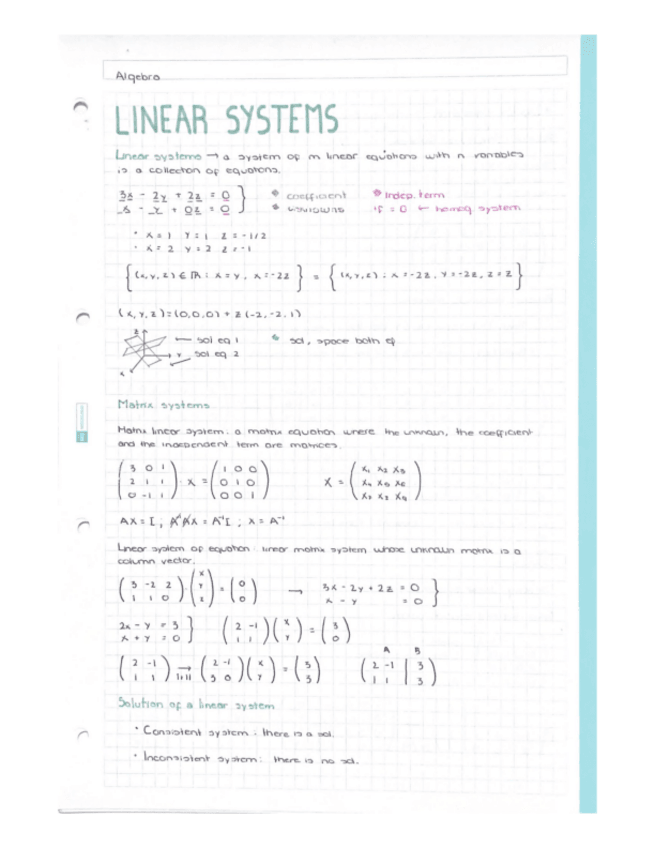 Algebra
LINEAR SYSTEMS
Linear systems → a system of m linear equations with n variables
is a collection of equations.
3x - 2y + 2z = 0 } coefficient Indep. term
x - y + 0z = 0 unknowns if = 0 ← homog system
· x = 1 y = 1 z = -1/2
· x = 2 y = 2 z = -1
{(x, y, z) ∈ ℝ : x = y, x = -2z} = {(x, y, z) : x = -2z, y = -2z, z = z}
(x, y, z) = (0,0,0) + z(-2, -2, 1)
z
← sol eq 1 sol, space both of
y sol eq 2
x
Matrix systems
Matrix linear system: a matrix equation where the unknown, the coefficient
and the independent term are matrices.
(3 0 1) (1 0 0) (x₁ x₂ x₃)
(2 1 1) · X = (0 1 0) X =
(0 -1 1) (0 0 1)
AX = I ; A⁻¹AX = A⁻¹I ; X = A⁻¹
Linear system of equation: linear matrix system whose unknown matrix is a
column vector.
(3 -2 2) (x y z) = (0) → 3x - 2y + 2z = 0 }
(1 1 0) (0) x - y = 0
2x - y = 3 } (2 -1) (x) = (3)
x + y = 0 (1 1) (y) (0)
A B
(2 -1) → (2 -1) (x) = (3) (2 -1 | 3)
(1 1) (3 0) (y) (3) (1 1 | 3)
Solution of a linear system
· Consistent system: there is a sol.
· Inconsistent system: there is no sol.